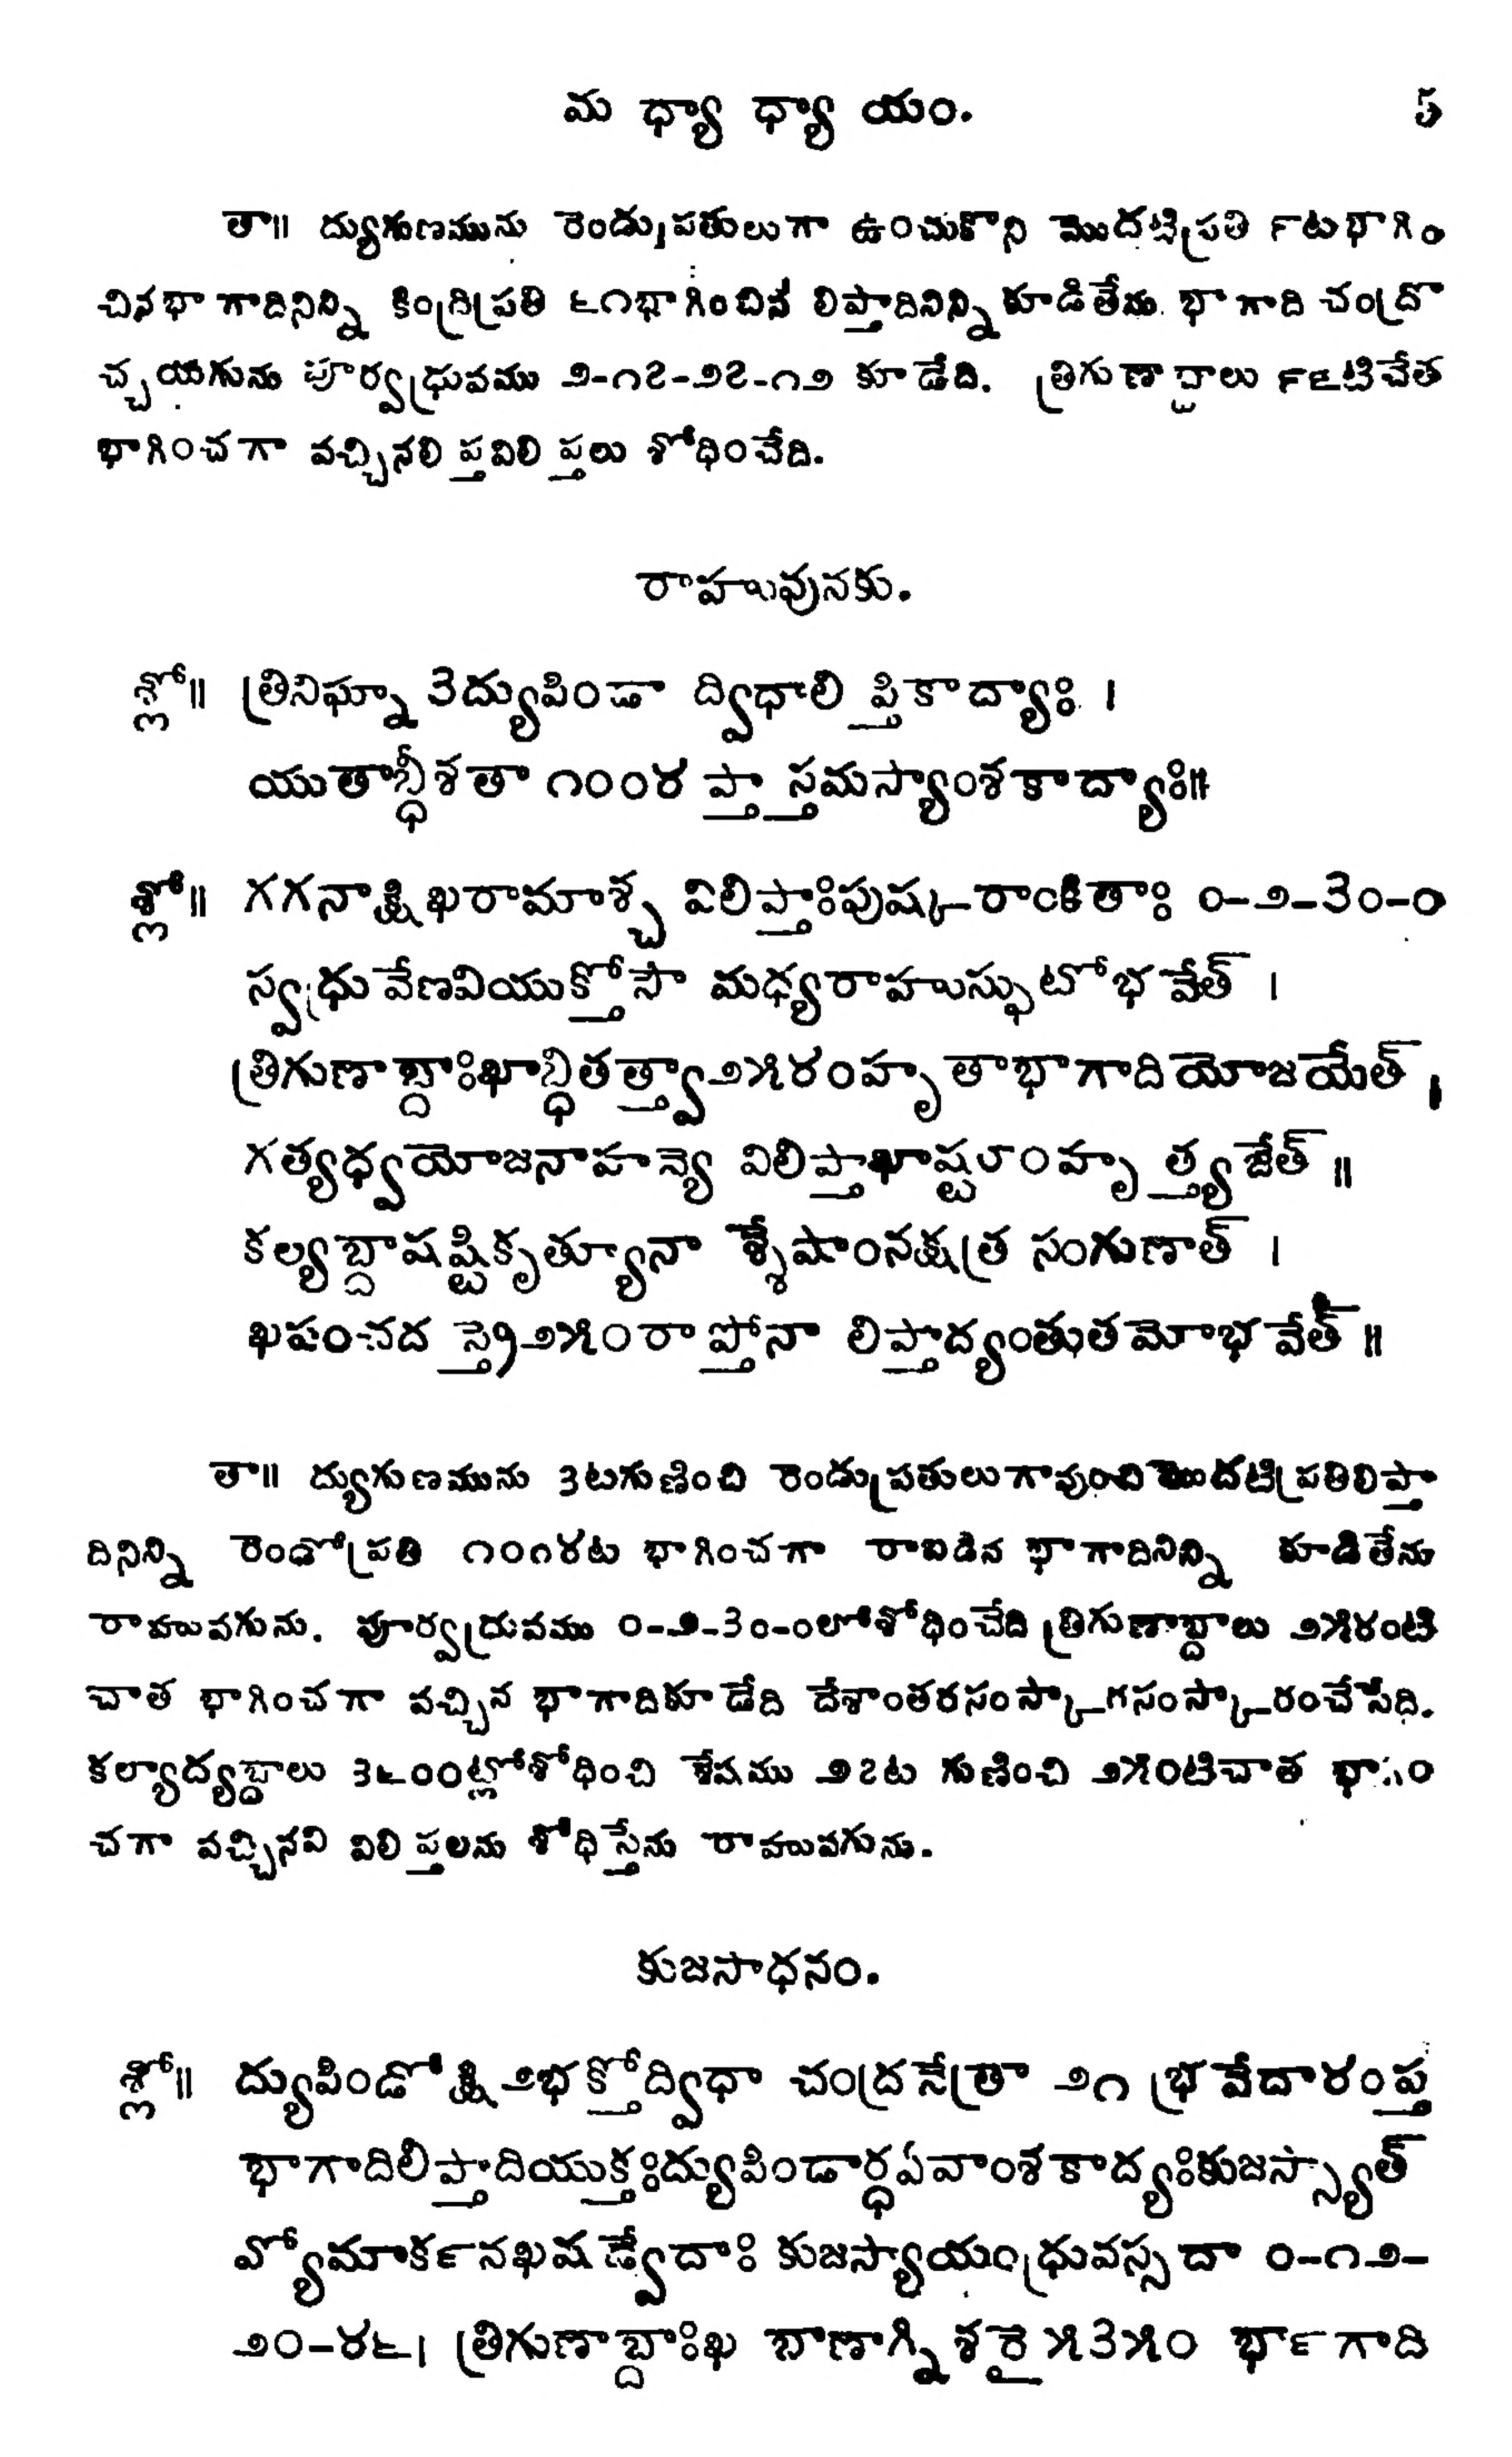 మ ధ్యా ధ్యా యం. 5
తా॥ ద్యుగుణమును రెండ్ప్రుతులుగా ఉంచుకొని మొదటిప్రతి ౯ట భాగిం
చినభా గాదినిన్ని కింద్రిప్రతి ౬౧భాగించిన లిప్తాదినిన్ని కూడితేను భాగాది చంద్రో
చ్చయగును పూర్వధ్రువము ౨-౧౭-౨౭-౧౨ కూడేది. త్రిగుణాబ్దాలు ౯౬టిచేత
భాగించగా వచ్చినలి ప్తవిలి ప్తలు శోధించేది.
రాహువునకు.
శ్లో॥ త్రినిఘ్నా 3ద్యుపిండా ద్విధాలి ప్తికాద్యాః ।
యుతాబ్ధీశతా ౧౦౦౪ ప్తా స్తమస్యాంశకాద్యాః॥
శ్లో॥ గగనాక్షిఖరామాశ్చ విలిప్తాఃపుష్కరాంకితాః ౦-౨-3౦-౦
స్వధ్రువేణవియుక్తోసౌ మధ్యరాహుస్ఫుటోభవేత్ ।
త్రిగుణాబ్దాఃఖాబ్ధితత్త్వా౨౫౪౦హృతాభాగాదియోజయేత్ ।
గత్యధ్వయోజనాహన్యె విలిప్తాఖాష్ట౮౦హృ త్త్యజేత్ ॥
కల్యబ్దాషష్టికృత్యూనా శ్శేషాంనక్షత్ర సంగుణాత్ ।
ఖపంచద స్త్రై౨౫౦రాప్తోనా లిప్తాద్యంతుతమోభవేత్ ॥
తా॥ ద్యుగుణమును 3టగుణించి రెండుప్రతులుగావుంచి మొదటిప్రతిలిప్తా
దినిన్ని రెండోప్రతి ౧౦౦౪ట భాగించగా రాబడిన భాగాదినిన్ని కూడితేను
రాహువగును. పూర్వధ్రువము ౦-౨-3౦-౦లోశోధించేది త్రిగుణాబ్దాలు ౨౫౪౦టి
చాత భాగించగా వచ్చిన భాగాదికూడేది దేశాంతరసంస్కారసంస్కారంచేసేది.
కల్యాద్యబ్దాలు 3౬౦౦ట్లోశోధించి శేషము ౨౭ట గుణించి ౨౫౦టిచాత భాగిం
చగా వచ్చినవి విలి ప్తలను శోధిస్తేను రాహువగును.
కుజసాధనం.
శ్లో॥ ద్యుపిండోక్షి౨భక్తోద్విధా చంద్రనేత్రా ౨౧ భ్రవేదా౪౦ప్త
భాగాదిలిప్తాదియుక్తఃద్యుపిండార్ధఏవాంశకాద్యఃకుజస్స్యాత్
వ్యోమార్కనఖషడ్వేదాః కుజస్యాయంధ్రువస్సదా ౦-౧౨-
౨౦-౪౬। త్రిగుణాబ్దాఃఖ బాణాగ్నిశరై ౫3౫౦ ర్భాగాది